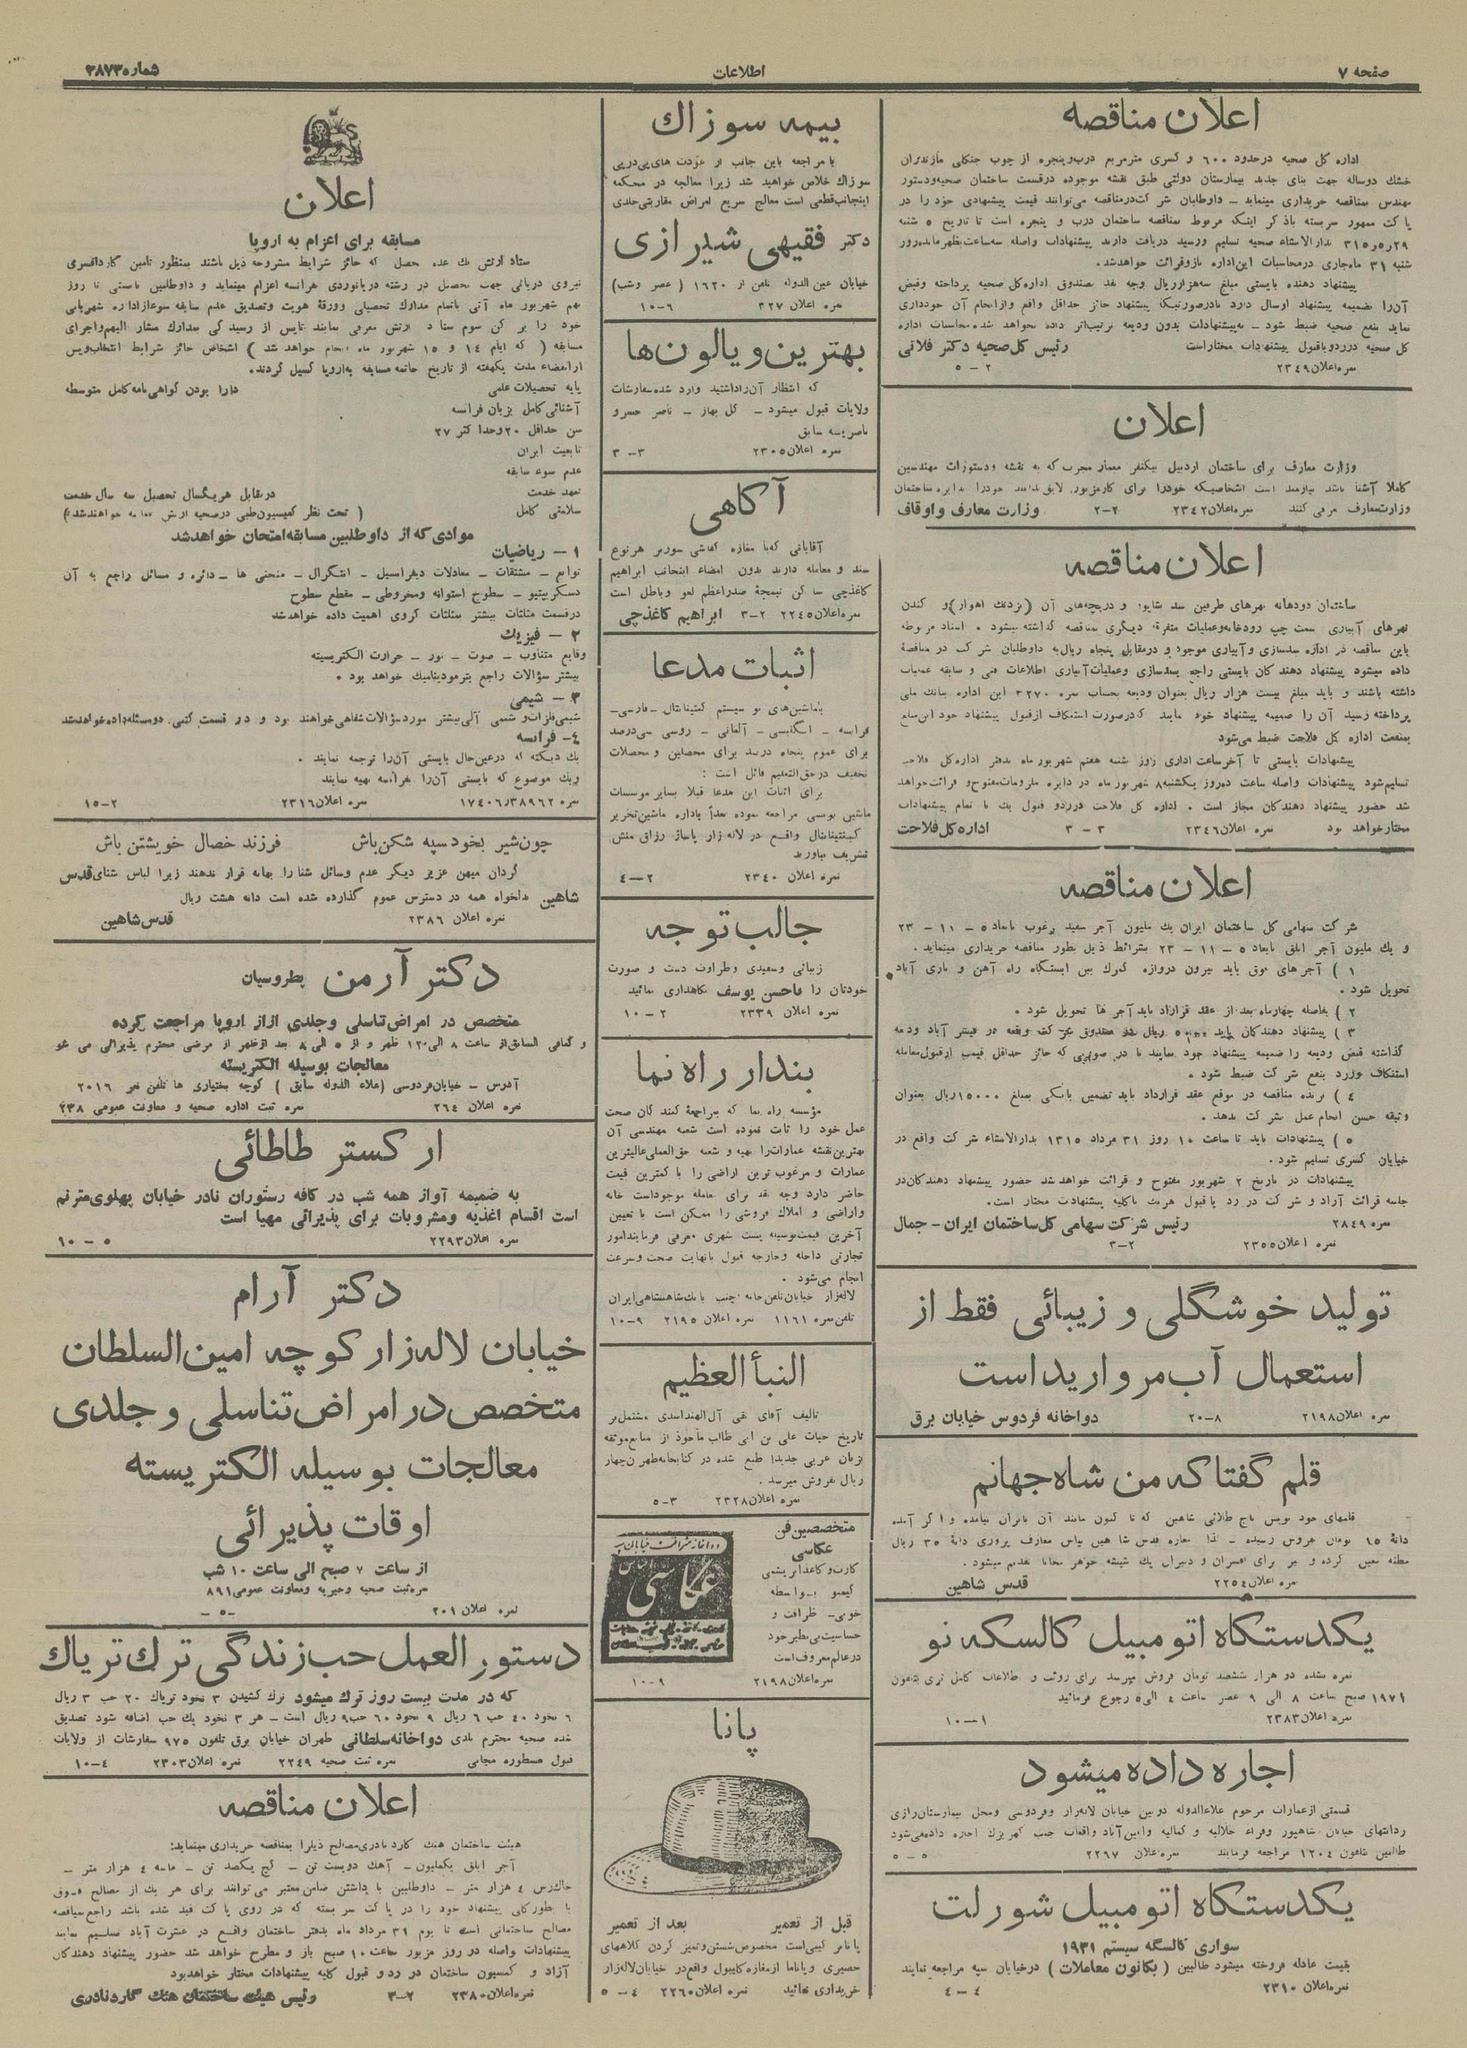 صفحه ۷
اطلاعات
شماره ۳۸۷۳
اعلان مناقصه
اداره کل صحیه درحدود ۶۰۰ و کسری مترمربع درب و پنجره از چوب جنگلی مازندران
خشک دوساله جهت بنای جدید بیمارستان دولتی طبق نقشه موجوده درقسمت ساختمان صحیه و دستور
مهندس بمناقصه خریداری مینماید - داوطلبان شرکت درمناقصه می‌توانند قیمت پیشنهادی خود را در
پاکت ممهور سربسته با ذکر اینکه مربوط بمناقصه ساختمان درب و پنجره است تا تاریخ ۵ شنبه
شنبه ۳۱ ماه جاری درمحاسبات این اداره باز و قرائت خواهد شد.
پیشنهاد دهنده بایستی مبلغ سه هزار ریال وجه نقد بصندوق اداره کل صحیه پرداخته و قبض
کل صحیه در رد و یا قبول پیشنهادات مختار است
رئیس کل صحیه دکتر فلاتی
نمره اعلان ۲۳۴۹
۲ - ۵
اعلان
وزارت معارف برای ساختمان اردبیل بیکنفر معمار مجرب که به نقشه و دستورات مهندسین
کاملا آشنا باشد نیازمند است اشخاصیکه خود را برای کار مزبور لایق بدانند خود را بدایره ساختمان
وزارت معارف معرفی کنند نمره اعلان ۲۳۴۲ ۲-۲ وزارت معارف و اوقاف
اعلان مناقصه
داده میشود پیشنهاد دهندگان بایستی راجع بسدسازی و عملیات آبیاری اطلاعات فنی و سابقه عملیات
داشته باشند و باید مبلغ بیست هزار ریال بعنوان ودیعه بحساب نمره ۳۲۷۰ این اداره ببانک ملی
پرداخته رسید آن را ضمیمه پیشنهاد خود نمایند که درصورت استنکاف از قبول پیشنهاد خود این مبلغ
بمنفعت اداره کل فلاحت ضبط می‌شود
پیشنهادات بایستی تا آخر ساعت اداری روز شنبه هفتم شهریور ماه بدفتر اداره کل فلاحت
شد حضور پیشنهاد دهندگان مجاز است . اداره کل فلاحت در رد و قبول یک یا تمام پیشنهادات
مختار خواهد بود نمره اعلان ۲۳۴۶ ۳ - ۳ اداره کل فلاحت
اعلان مناقصه
شرکت سهامی کل ساختمان ایران یک ملیون آجر سفید مرغوب بابعاد ۵ - ۱۱ - ۲۳
و یک ملیون آجر ابلق بابعاد ۵ - ۱۱ - ۲۳ بشرائط ذیل بطور مناقصه خریداری مینماید .
۱ ) آجرهای فوق باید بیرون دروازه گمرک بین ایستگاه راه آهن و یاری آباد
تحویل شود .
۲ ) بفاصله چهارماه بعد از عقد قرارداد باید آجرها تحویل شود .
استنکاف ورزد بنفع شرکت ضبط شود .
۴ ) برنده مناقصه در موقع عقد قرارداد باید تضمین بانکی بمبلغ ۱۵۰۰۰ ریال بعنوان
وثیقه حسن انجام عمل بشرکت بدهد.
۵ ) پیشنهادات باید تا ساعت ۱۰ روز ۳۱ مرداد ۱۳۱۵ بدارالانشاء شرکت واقع در
خیابان کسری تسلیم شود .
پیشنهادات در تاریخ ۲ شهریور مفتوح و قرائت خواهد شد حضور پیشنهاد دهندگان در
جلسه قرائت آزاد و شرکت در رد یا قبول هر یک یا کلیه پیشنهادات مختار است.
نمره ۲۸۴۹ رئیس شرکت سهامی کل ساختمان ایران - جمال
نمره اعلان ۲۳۵۵ ۲-۳
تولید خوشگلی و زیبائی فقط از
استعمال آب مروارید است
نمره اعلان ۲۱۹۸ ۸-۲۰ دواخانه فردوس خیابان برق
قلم گفتا که من شاه جهانم
نمره اعلان ۲۲۵۴ قدس شاهین
یکدستگاه اتومبیل کالسکه نو
۱۹۷۱ صبح ساعت ۸ الی ۹ عصر ساعت ۴ الی ۵ رجوع فرمائید
نمره اعلان ۲۳۸۳ ۱-۱۰
اجاره داده میشود
قسمتی از عمارات مرحوم علاءالدوله دو بین خیابان لاله‌زار و فردوسی و محل بیمارستان رازی
طالبین بتلفون ۱۲۰۴ مراجعه فرمایند نمره اعلان ۲۲۶۷ ۵ - ۵
یکدستگاه اتومبیل شورلت
سواری کالسگه سیستم ۱۹۳۱
بقیمت عادله فروخته میشود طالبین ( بکانون معاملات ) درخیابان سپه مراجعه نمایند
نمره اعلان ۲۳۱۰ ۴ - ۴
بیمه سوزاک
با مراجعه باین جانب از عودت‌های پی‌درپی
سوزاک خلاص خواهید شد زیرا معالجه در محکمه
اینجانب قطعی است معالج سریع امراض مقاربتی جلدی
دکتر فقیهی شیرازی
خیابان عین‌الدوله تلفن نمره ۱۶۲۰ ( عصر و شب )
نمره اعلان ۳۲۷ ۶-۱۰
بهترین ویالون‌ها
که انتظار آن را داشتید وارد شده سفارشات
ولایات قبول میشود - گل بهار - ناصر خسرو
ناصریه سابق
نمره اعلان ۲۳۰۵ ۳-۳
آگاهی
سند و معامله دارند بدون امضاء اینجانب ابراهیم
کاغذچی ساکن تیمچه صدراعظم لغو و باطل است
نمره اعلان ۲۲۴۵ ۲-۳ ابراهیم کاغذچی
اثبات مدعا
با ماشین‌های نو سیستم کنتینانتال - فارسی -
فرانسه - انگلیسی - آلمانی - روسی سی‌درصد
برای عموم پنجاه درصد برای محصلین و محصلات
تخفیف در حق‌التعلیم قائل است :
برای اثبات این مدعا قبلا بسایر موسسات
ماشین نویسی مراجعه نموده بعداً باداره ماشین تحریر
کنتینانتال واقع در لاله زار پاساژ رزاق منش
تشریف بیاورید
نمره اعلان ۲۳۴۰ ۲-۴
جالب توجه
زیبائی و سفیدی و طراوت دست و صورت
خودتان را باحسن یوسف نگاهداری نمائید
نمره اعلان ۲۳۳۹ ۲ - ۱۰
بندار راه نما
مؤسسه راه نما که بمراجعه کنندگان صحت
عمل خود را ثابت نموده است شعبه مهندسی آن
بهترین نقشه عمارات را تهیه و شعبه حق‌العملی عالیترین
عمارات و مرغوب ترین اراضی را با کمترین قیمت
حاضر دارد وجه نقد برای معامله موجود است خانه
و اراضی و املاک فروشی را ممکن است با تعیین
آخرین قیمت بوسیله پست شهری معرفی فرمایند امور
تجارتی داخله و خارجه قبول با نهایت صحت و سرعت
انجام می‌شود .
تلفن نمره ۱۱۶۱ نمره اعلان ۲۱۹۵ ۹-۱۰
النبأ العظیم
تاریخ حیات علی بن ابی طالب مأخوذ از منابع موثقه
بزبان عربی جدیدا طبع شده در کتابخانه طهران چهار
ریال بفروش میرسد .
نمره اعلان ۲۳۲۸ ۳-۵
متخصصین فن
عکاسی
کارت و کاغذ ابریشمی
گیمو بواسطه
خوبی - ظرافت و
حساسیت بی‌نظیر خود
در عالم معروف است
نمره اعلان ۲۱۹۸ ۹-۱۰
عکاسی
پانا
قبل از تعمیر بعد از تعمیر
پانامر کیبی است مخصوص شستن و تمیز کردن کلاههای
حصیری و پاناما از مغازه کاپیول واقع در خیابان لاله‌زار
خریداری نمائید نمره اعلان ۲۲۶۰ ۴ - ۵
اعلان
مسابقه برای اعزام به اروپا
ستاد ارتش یک عده محصل که حائز شرایط مشروحه ذیل باشند بمنظور تامین کادر افسری
نیروی دریائی جهت تحصیل در رشته دریانوردی بفرانسه اعزام مینماید و داوطلبین بایستی تا روز
نهم شهریور ماه آتی باتمام مدارک تحصیلی و ورقهٔ هویت و تصدیق عدم سابقه سوء از اداره شهربانی
خود را برکن سوم ستاد ارتش معرفی نمایند تا پس از رسیدگی بمدارک مشار الیهم و اجرای
مسابقه ( که ایام ۱۴ و ۱۵ شهریور ماه انجام خواهد شد ) اشخاص حائز شرایط انتخاب و پس
از انقضاء مدت یکهفته از تاریخ خاتمه مسابقه به اروپا گسیل گردند.
پایه تحصیلات علمی دارا بودن گواهی‌نامه کامل متوسطه
آشنائی کامل بزبان فرانسه
سن حداقل ۲۰ و حداکثر ۲۷
تابعیت ایران
عدم سوء سابقه
تعهد خدمت درمقابل هر یکسال تحصیل سه سال خدمت
سلامتی کامل ( تحت نظر کمیسیون طبی در صحیه ارتش معاینه خواهند شد )
موادی که از داوطلبین مسابقه امتحان خواهد شد
۱ - ریاضیات
توابع - مشتقات - معادلات دیفرانسیل - انتگرال - منحنی ها - دائره و مسائل راجع به آن
دسکریپتیو - سطوح استوانه و مخروطی - مقطع سطوح
درقسمت مثلثات بیشتر بمثلثات کروی اهمیت داده خواهد شد
۲ - فیزیک
وقایع متناوب - صوت - نور - حرارت الکتریسیته
بیشتر سؤالات راجع بترمودینامیک خواهد بود .
۳ - شیمی
شیمی فلزات و شیمی آلی بیشتر مورد سؤالات شفاهی خواهند بود و در قسمت کتبی دو مسئله داده خواهد شد
۴- فرانسه
یک دیکته که درعین حال بایستی آن را ترجمه نمایند .
و یک موضوع که بایستی آن را بفرانسه تهیه نمایند
نمره ۱۷۴۰۶/۳۸۹۶۲ نمره اعلان ۲۳۱۶ ۲-۱۵
چون شیر بخود سپه شکن باش فرزند خصال خویشتن باش
گردان میهن عزیز دیگر عدم وسائل شنا را بهانه قرار ندهند زیرا لباس شنای قدس
شاهین بدلخواه همه در دسترس عموم گذارده شده است دانه هشت ریال
نمره اعلان ۲۳۸۶ قدس شاهین
دکتر آرمن پطروسیان
متخصص در امراض تناسلی و جلدی از از اروپا مراجعت کرده
و کمافی السابق از ساعت ۸ الی ۱۲ ظهر و از ۵ الی ۸ بعد از ظهر از مرضی محترم پذیرائی می شو
معالجات بوسیله الکتریسته
آدرس - خیابان فردوسی (علاء الدوله سابق ) کوچه بختیاری ها تلفن نمره ۲۰۱۶
نمره اعلان ۲۶۴ نمره ثبت اداره صحیه و معاونت عمومی ۲۳۸
ارکستر طاطائی
به ضمیمه آواز همه شب در کافه رستوران نادر خیابان پهلوی مترنم
است اقسام اغذیه و مشروبات برای پذیرائی مهیا است
نمره اعلان ۲۲۹۳ ۵ - ۱۰
دکتر آرام
خیابان لاله‌زار کوچه امین السلطان
متخصص در امراض تناسلی و جلدی
معالجات بوسیله الکتریسته
اوقات پذیرائی
از ساعت ۷ صبح الی ساعت ۱۰ شب
نمره ثبت صحیه و خیریه و معاونت عمومی ۸۹۱
نمره اعلان ۲۰۱ -۵-
دستور العمل حب زندگی ترک تریاک
که در مدت بیست روز ترک میشود ترک کشیدن ۳ نخود تریاک ۲۰ حب ۳ ریال
۶ نخود ۴۰ حب ۶ ریال ۹ نخود ۶۰ حب ۹ ریال است - هر ۳ نخود یک حب اضافه شود تصدیق
شده صحیه محترم بلدی دواخانه سلطانی طهران خیابان برق تلفون ۹۷۵ سفارشات از ولایات
قبول مسطوره مجانی نمره ثبت صحیه ۲۲۴۹ نمره اعلان ۲۳۰۳ ۴-۱۰
اعلان مناقصه
هیئت ساختمان هنگ گارد نادری مصالح ذیل را بمناقصه خریداری مینماید:
آجر ابلق یکملیون - آهک دویست تن - گچ یکصد تن - ماسه ۴ هزار متر -
خاک رس ۴ هزار متر - داوطلبین با داشتن ضامن معتبر می‌توانند برای هر یک از مصالح فوق
مصالح ساختمانی است تا یوم ۳۱ مرداد ماه بدفتر ساختمان واقع در عشرت آباد تسلیم نمایند
پیشنهادات واصله در روز مزبور ساعت ۱۰ صبح باز و مطرح خواهد شد حضور پیشنهاد دهندگان
آزاد و کمسیون ساختمان در رد و قبول کلیه پیشنهادات مختار خواهد بود
نمره اعلان ۲۳۸۰ ۲-۳ رئیس هیئت ساختمان هنگ گارد نادری